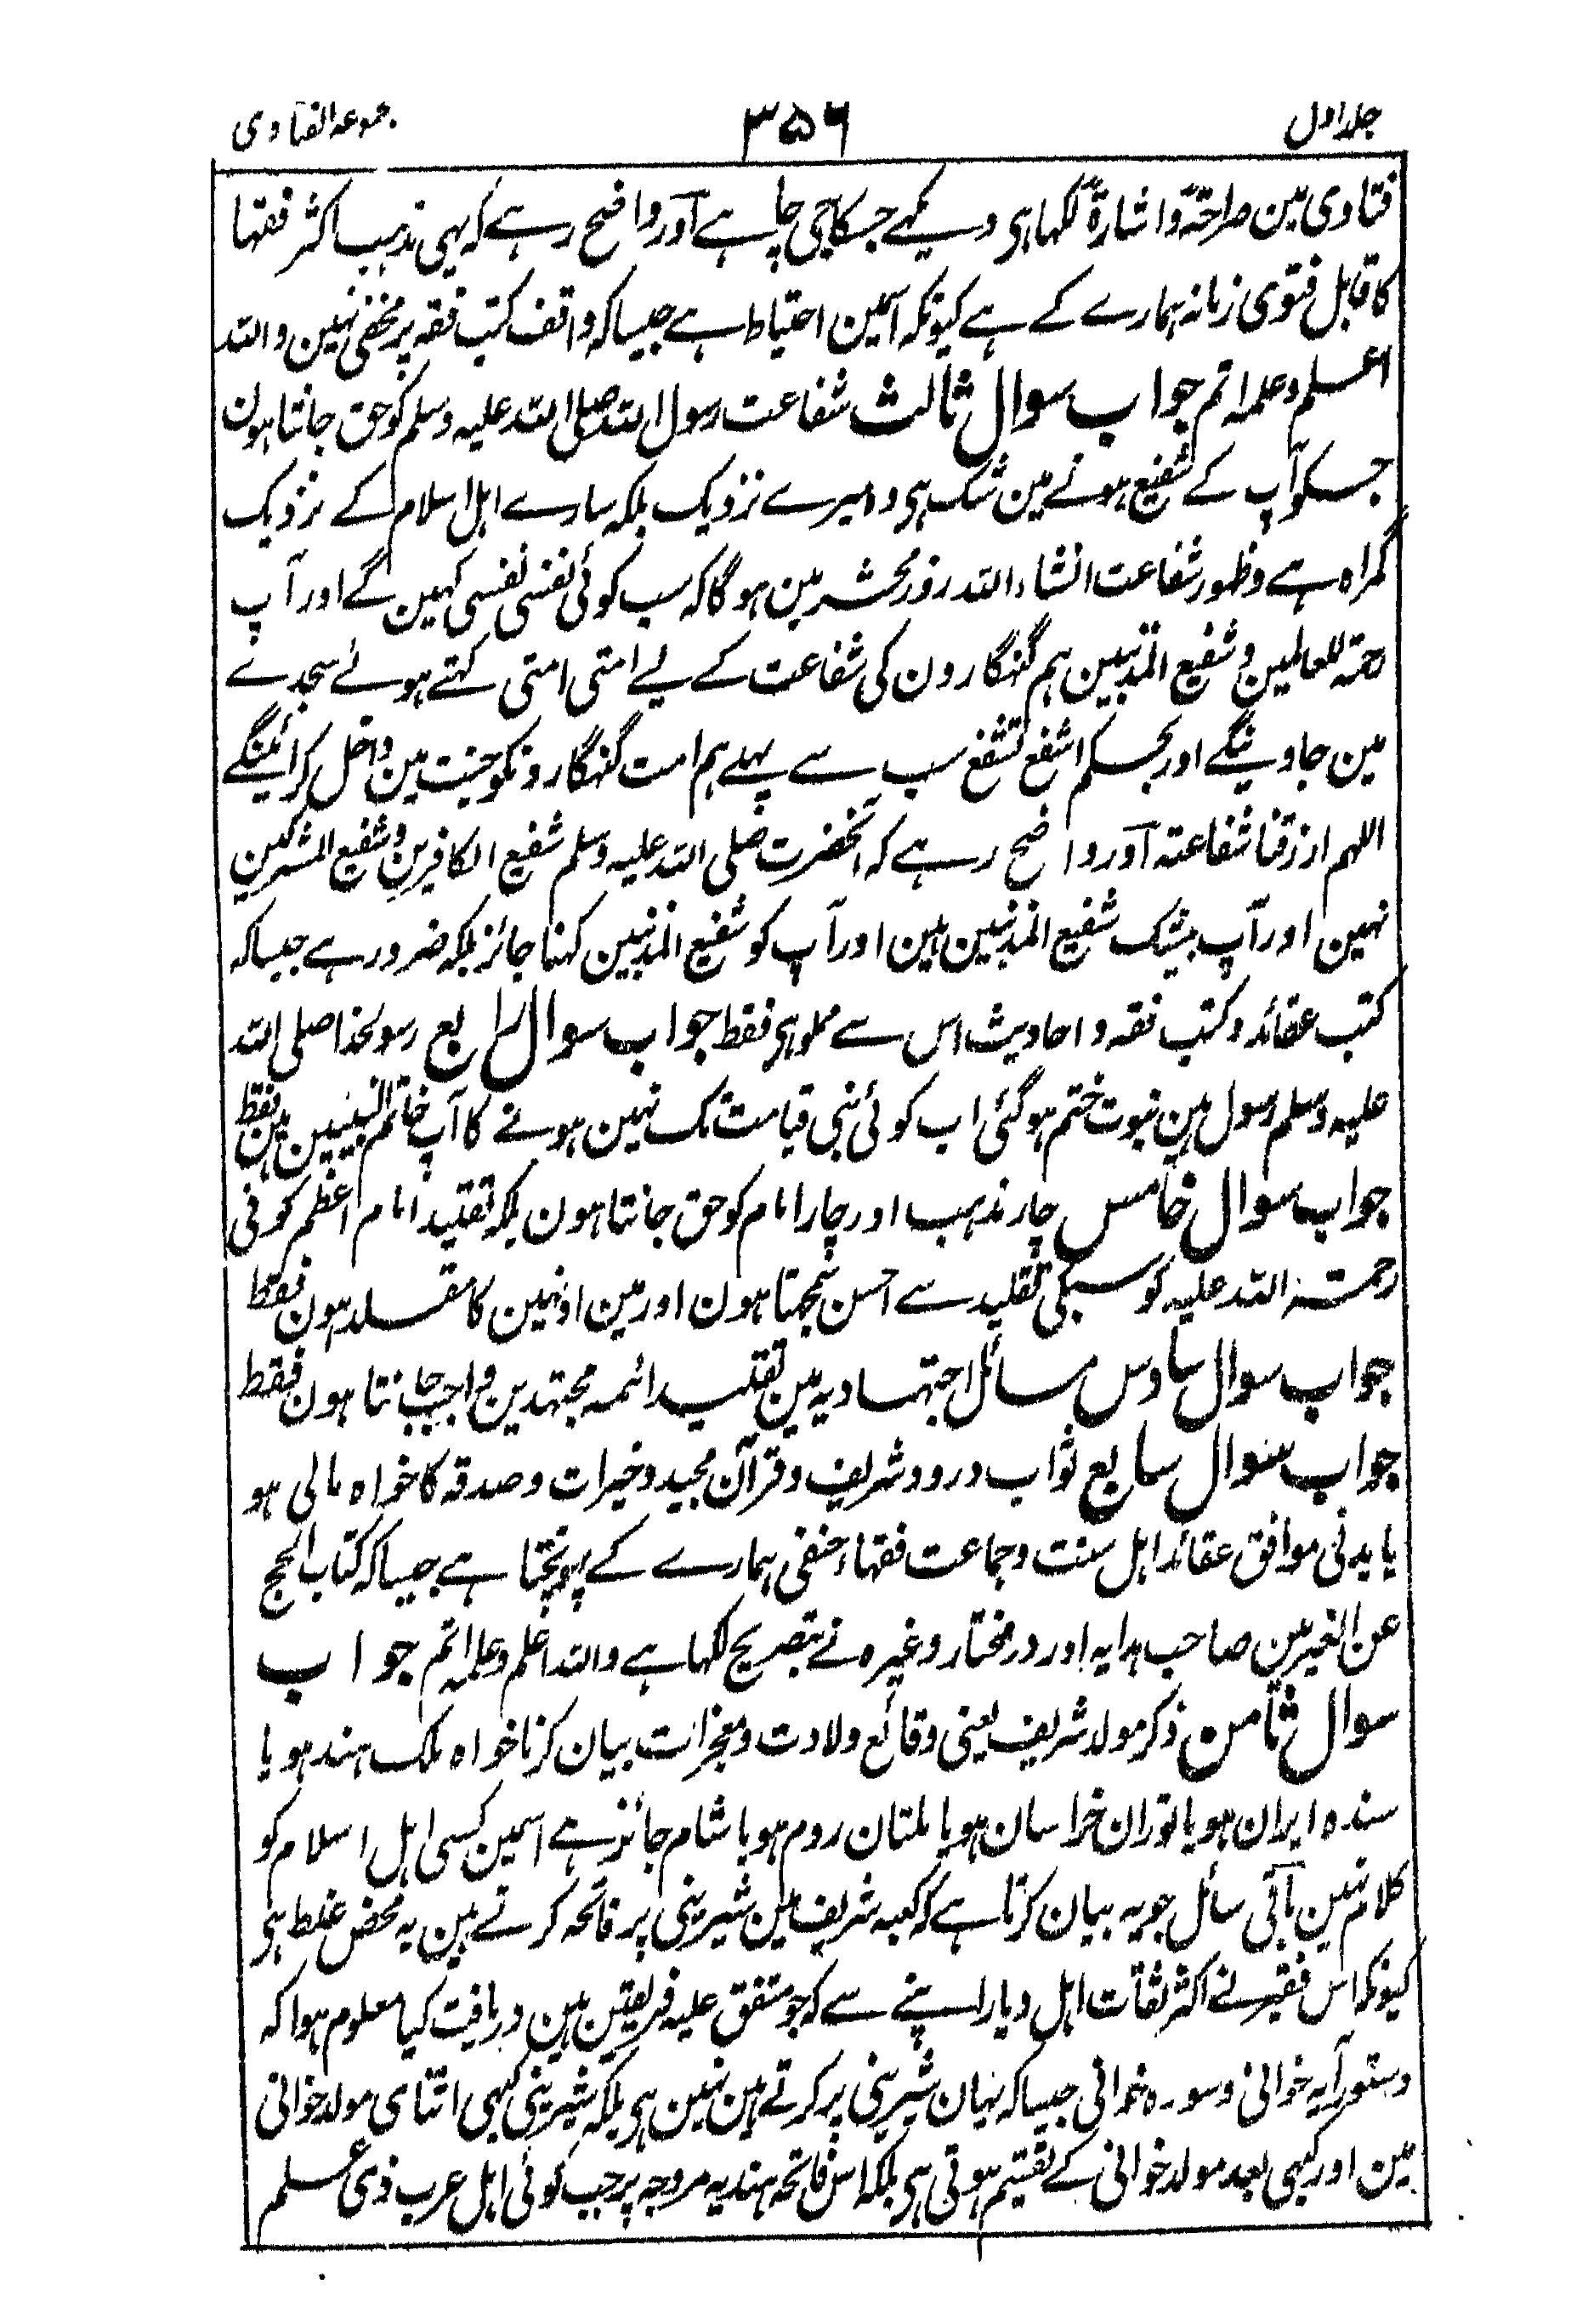 جلد اول
۳۵۶
مجموعۃ الفتاوی
فتاوی مین صراحۃً و اشارۃً لکھا ہی دیکھے جسکا جی چاہے اور واضح رہے کہ یہی مذہب اکثر فقہا
کا قابل فتوی زمانہ ہمارے کے ہے کیونکہ اسمین احتیاط ہے جیسا کہ واقف کتب فقہ پر مخفی نہین واللہ
اعلم وعلمہ اتم جواب سوال ثالث شفاعت رسول اللہ صلی اللہ علیہ وسلم کو حق جانتا ہون
جسکو آپ کے شفیع ہونے مین شک ہی وہ میرے نزدیک بلکہ سارے اہل اسلام کے نزدیک
گمراہ ہے وظہور شفاعت انشاء اللہ روز محشر مین ہوگا کہ سب کوئی نفسی نفسی کہین گے اور آپ
رحمۃ للعالمین وشفیع المذنبین ہم گنہگارون کی شفاعت کے لیے امتی امتی کہتے ہوئے سجدے
مین جاوینگے اور بحکم اشفع تشفع سب سے پہلے ہم امت گنہگارونکو جنت مین داخل کرائینگے
اللہم ارزقنا شفاعتہ اور واضح رہے کہ آنحضرت صلی اللہ علیہ وسلم شفیع الکافرین وشفیع المشرکین
نہین اور آپ بیشک شفیع المذنبین ہین اور آپ کو شفیع المذنبین کہنا جائز بلکہ ضرور ہے جیسا کہ
کتب عقائد و کتب فقہ و احادیث اس سے مملو ہی فقط جواب سوال رابع رسولخدا صلی اللہ
علیہ وسلم رسول ہین نبوت ختم ہو گئی اب کوئی نبی قیامت تک نہین ہونے کا آپ خاتم النبیین ہین فقط
جواب سوال خامس چار مذہب اور چار امام کو حق جانتا ہون بلکہ تقلید امام اعظم کوفی
رحمۃ اللہ علیہ کو سبکی تقلید سے احسن سمجھتا ہون اور مین اونہین کا مقلد ہون فقط
جواب سوال سادس مسائل اجتہادیہ مین تقلید ائمہ مجتہدین واجب جانتا ہون فقط
جواب سوال سابع ثواب درود شریف و قرآن مجید و خیرات و صدقہ کا خواہ مالی ہو
یا بدنی موافق عقائد اہل سنت وجماعت فقہاء حنفی ہمارے کے پہونچتا ہے جیسا کہ کتاب الحج
عن الغیر مین صاحب ہدایہ اور در مختار وغیرہ نے بتصریح لکھا ہے واللہ اعلم وعلمہ اتم جواب
سوال ثامن ذکر مولد شریف یعنی وقائع ولادت و معجزات بیان کرنا خواہ ملک ہند ہو یا
سندہ ایران ہو یا توران خراسان ہو یا ملتان روم ہو یا شام جائز ہے اسمین کسی اہل اسلام کو
کلام نہین باقی سائل جو یہ بیان کرتا ہے کہ کعبہ شریف مین شیرینی پر فاتحہ کرتے ہین یہ محض غلط ہی
کیونکہ اس فقیر نے اکثر ثقات اہل دیار اپنے سے کہ جو متفق علیہ فریقین ہین دریافت کیا معلوم ہوا کہ
دستور آیہ خوانی و سورہ خوانی جیسا کہ یہان شیرینی پر کرتے ہین نہین ہی بلکہ شیرینی کبھی اثنای مولد خوانی
مین اور کبھی بعد مولد خوانی کے تقسیم ہوتی ہی بلکہ اس فاتحہ ہندیہ مروجہ پر جب کوئی اہل عرب ذی علم